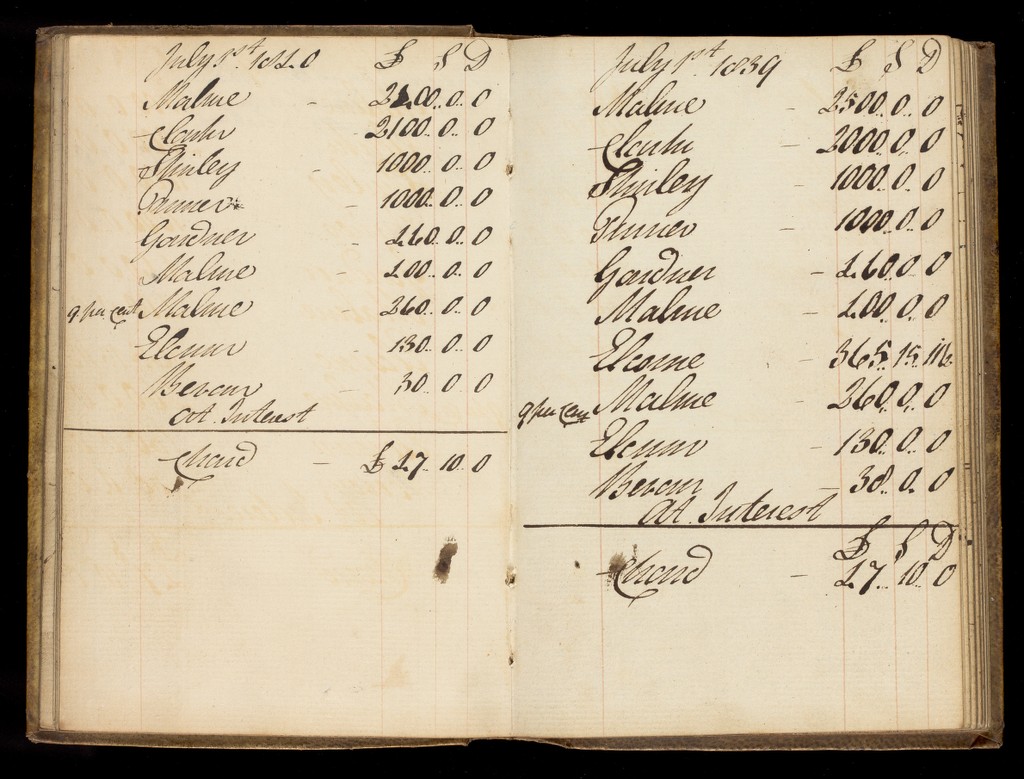 July 1st 1840 £ S D
Malme - 2400..0..0
Clarke 2100..0..0
Shirley - 1000..0..0
Pinner - 1000..0..0
Gardner - 460..0..0
Malme - 400..0..0
9 per cent Malme - 260..0..0
Elcom - 130..0..0
Bevan - 30..0..0
at Interest
Chard - £ 47..10..0
July 1st 1839 £ S D
Malme - 2500..0..0
Clarke - 2000..0..0
Shirley - 1000..0..0
Pinner - 1000..0..0
Gardner - 460..0..0
Malme - 400..0..0
Elcome - 365..15..11½
9 per Cent Malme - 260..0..0
Elcom - 130..0..0
Bevan - 30..0..0
at Interest
£ S D
Chard - 47..10..0